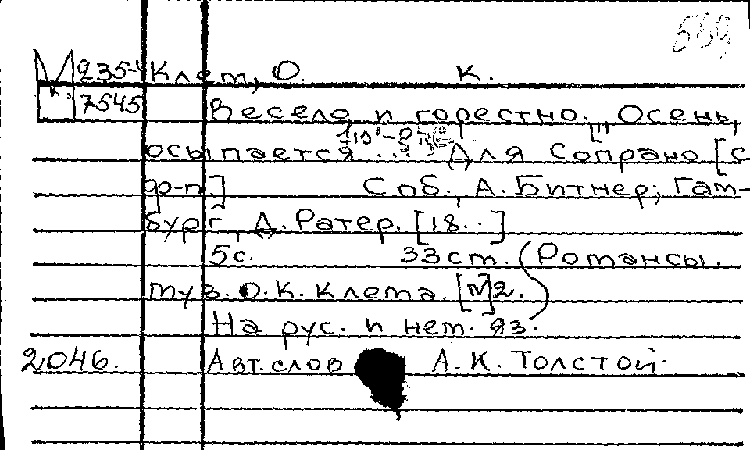 559
М 235-4 Клем, О. К.
7545 Весело и горестно. ["Осень
осыпается ... Для сопрано [с
ф-п.] Спб., А. Битнер; Гам-
бург, Д. Ратер. [18..]
5с. 33см. (Романсы.
муз. О. К. Клема. [№]2.)
На рус. и нем. яз.
2046. Авт. слов А. К. Толстой.